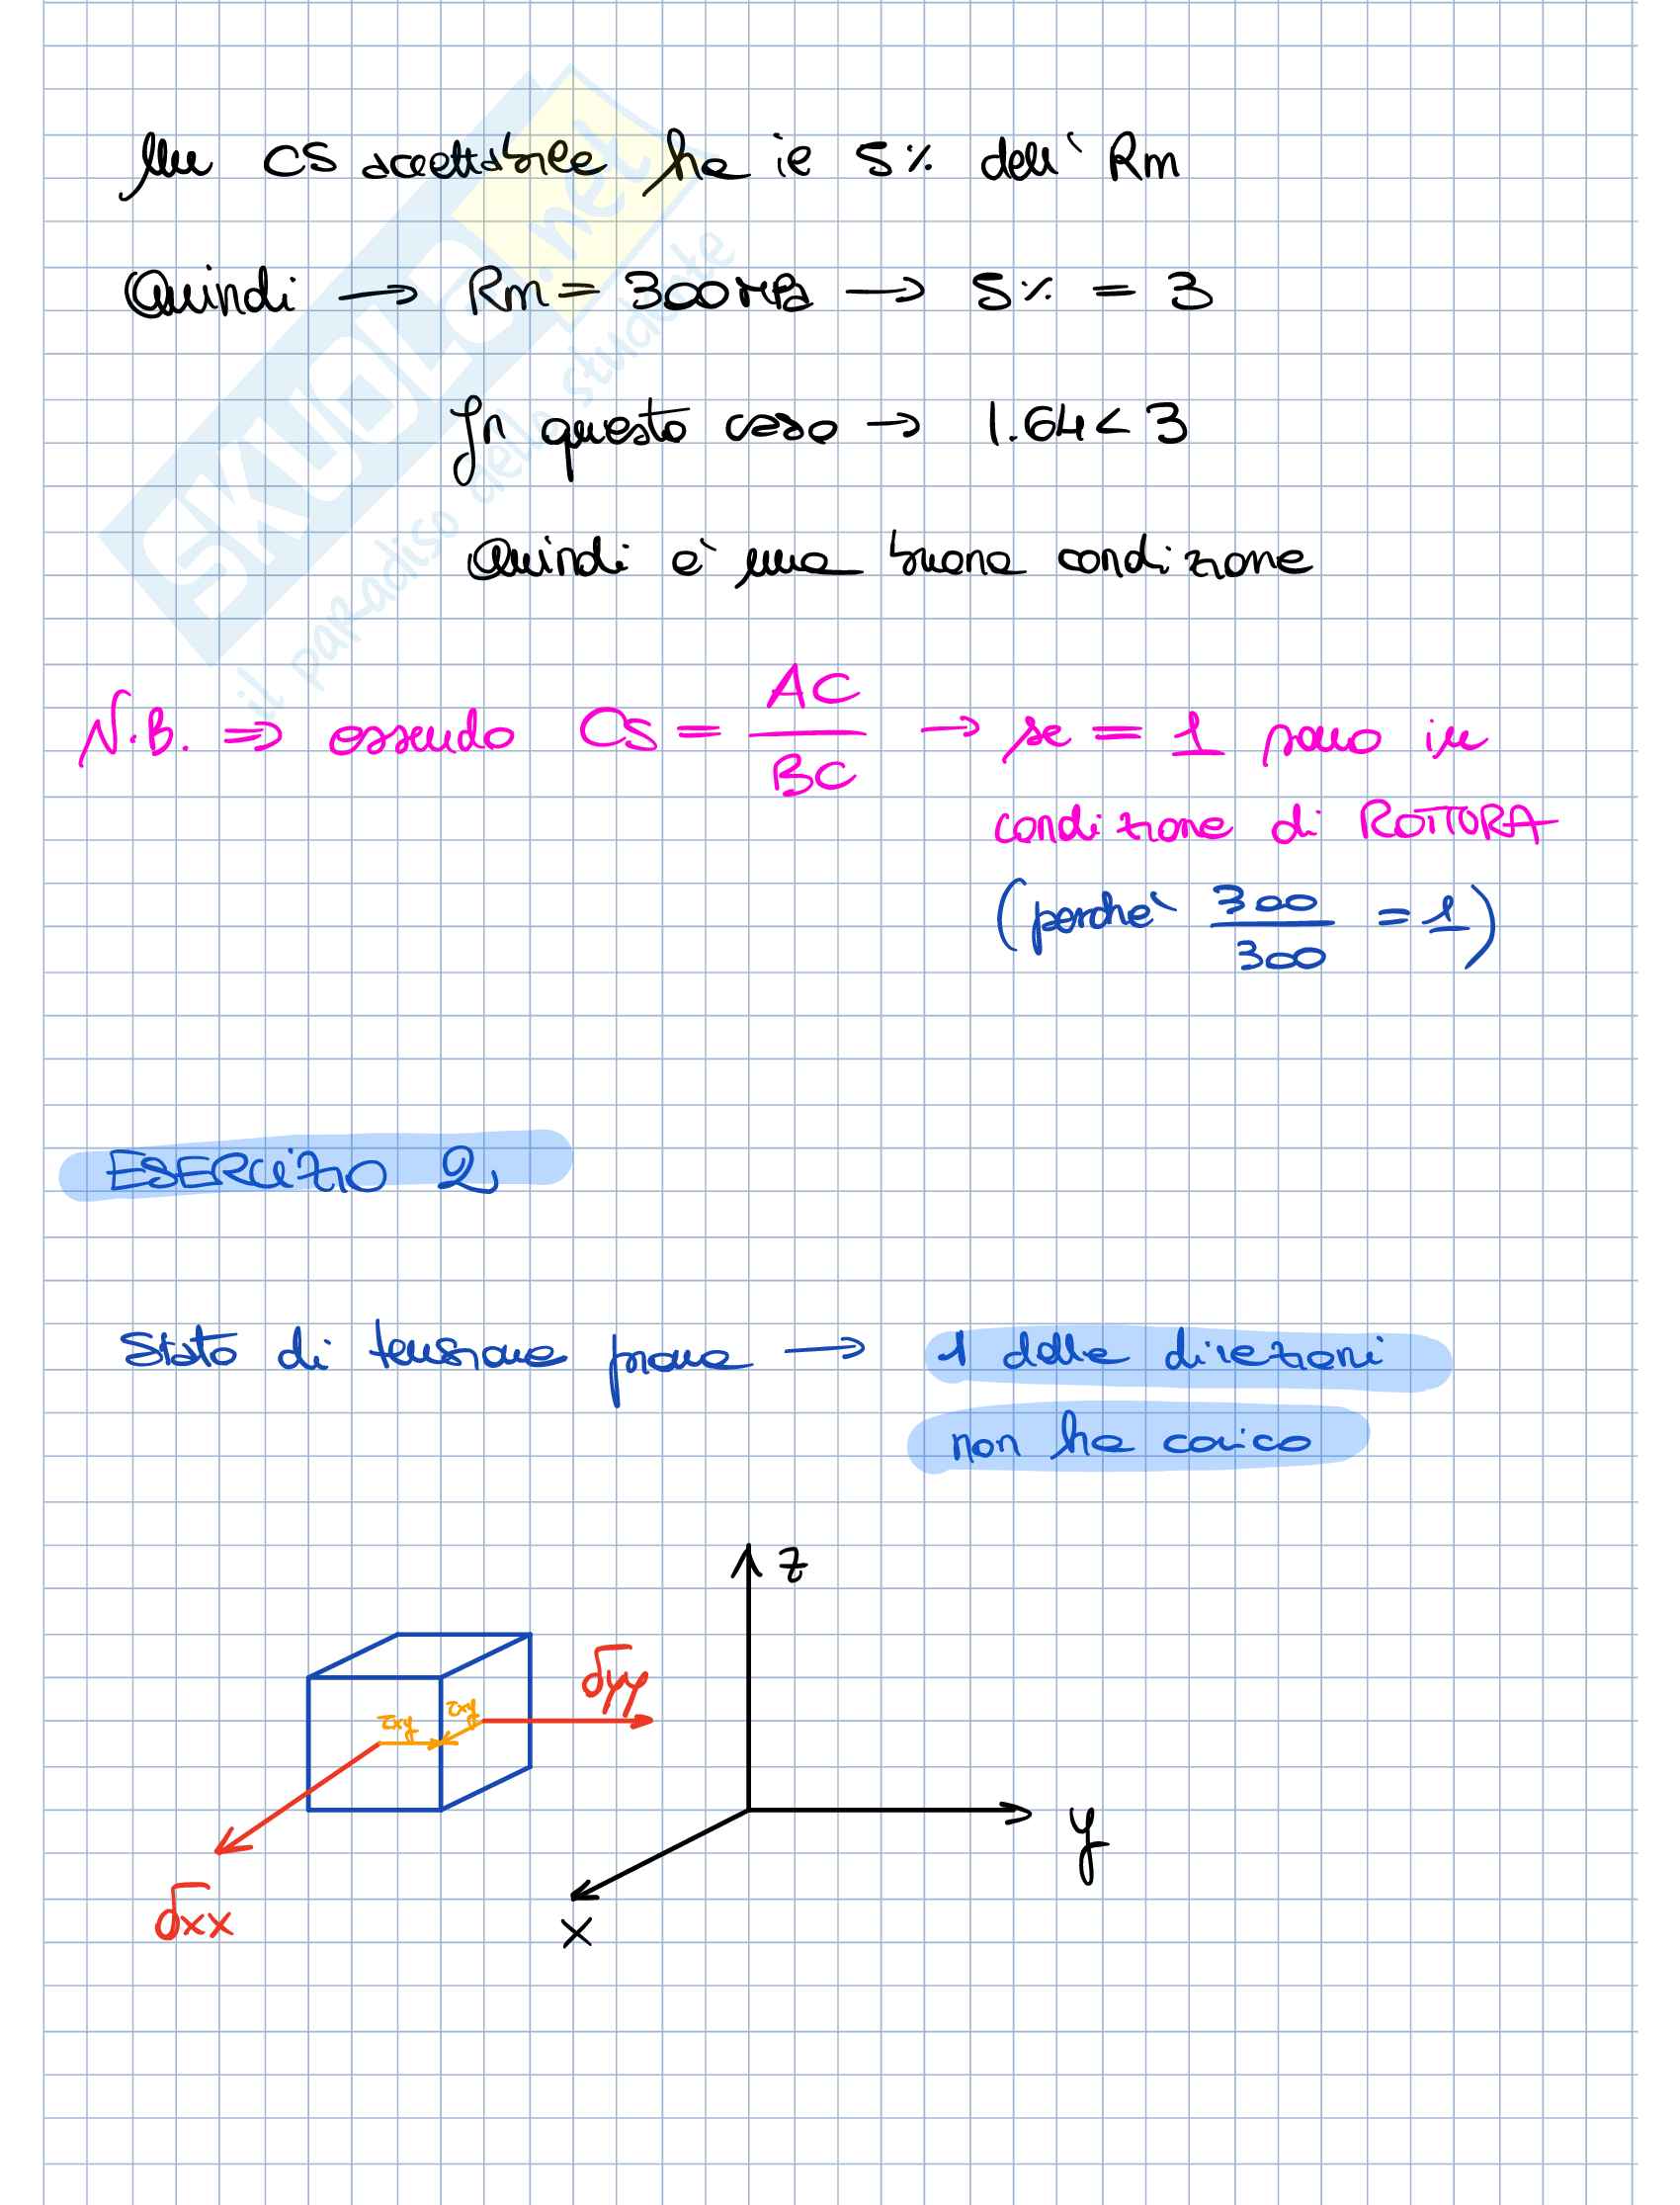 Un CS accettabile ha il 5% dell' Rm
Quindi → Rm = 300 MPa → 5% = 3
In questo caso → 1.64 < 3
Quindi e' una buona condizione
N.B. ⇒ essendo CS = AC/BC → se = 1 sono in
condizione di ROTTURA
(perche' 300/300 = 1)
ESERCIZIO 2
Stato di tensione piana → 1 delle direzioni
non ha carico
z
σyy
τxy τxy
y
σxx
x
SKUOLA.net
il paradiso dello studente